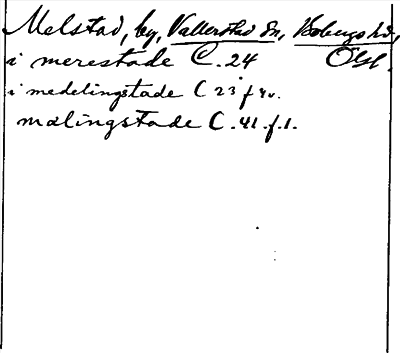 Melstad, by, Vallerstad sn, Bobergs hd,
i merestade C. 24 Ögl.
i medelingstade C 23 f
malingstade C. 41. f. 1.